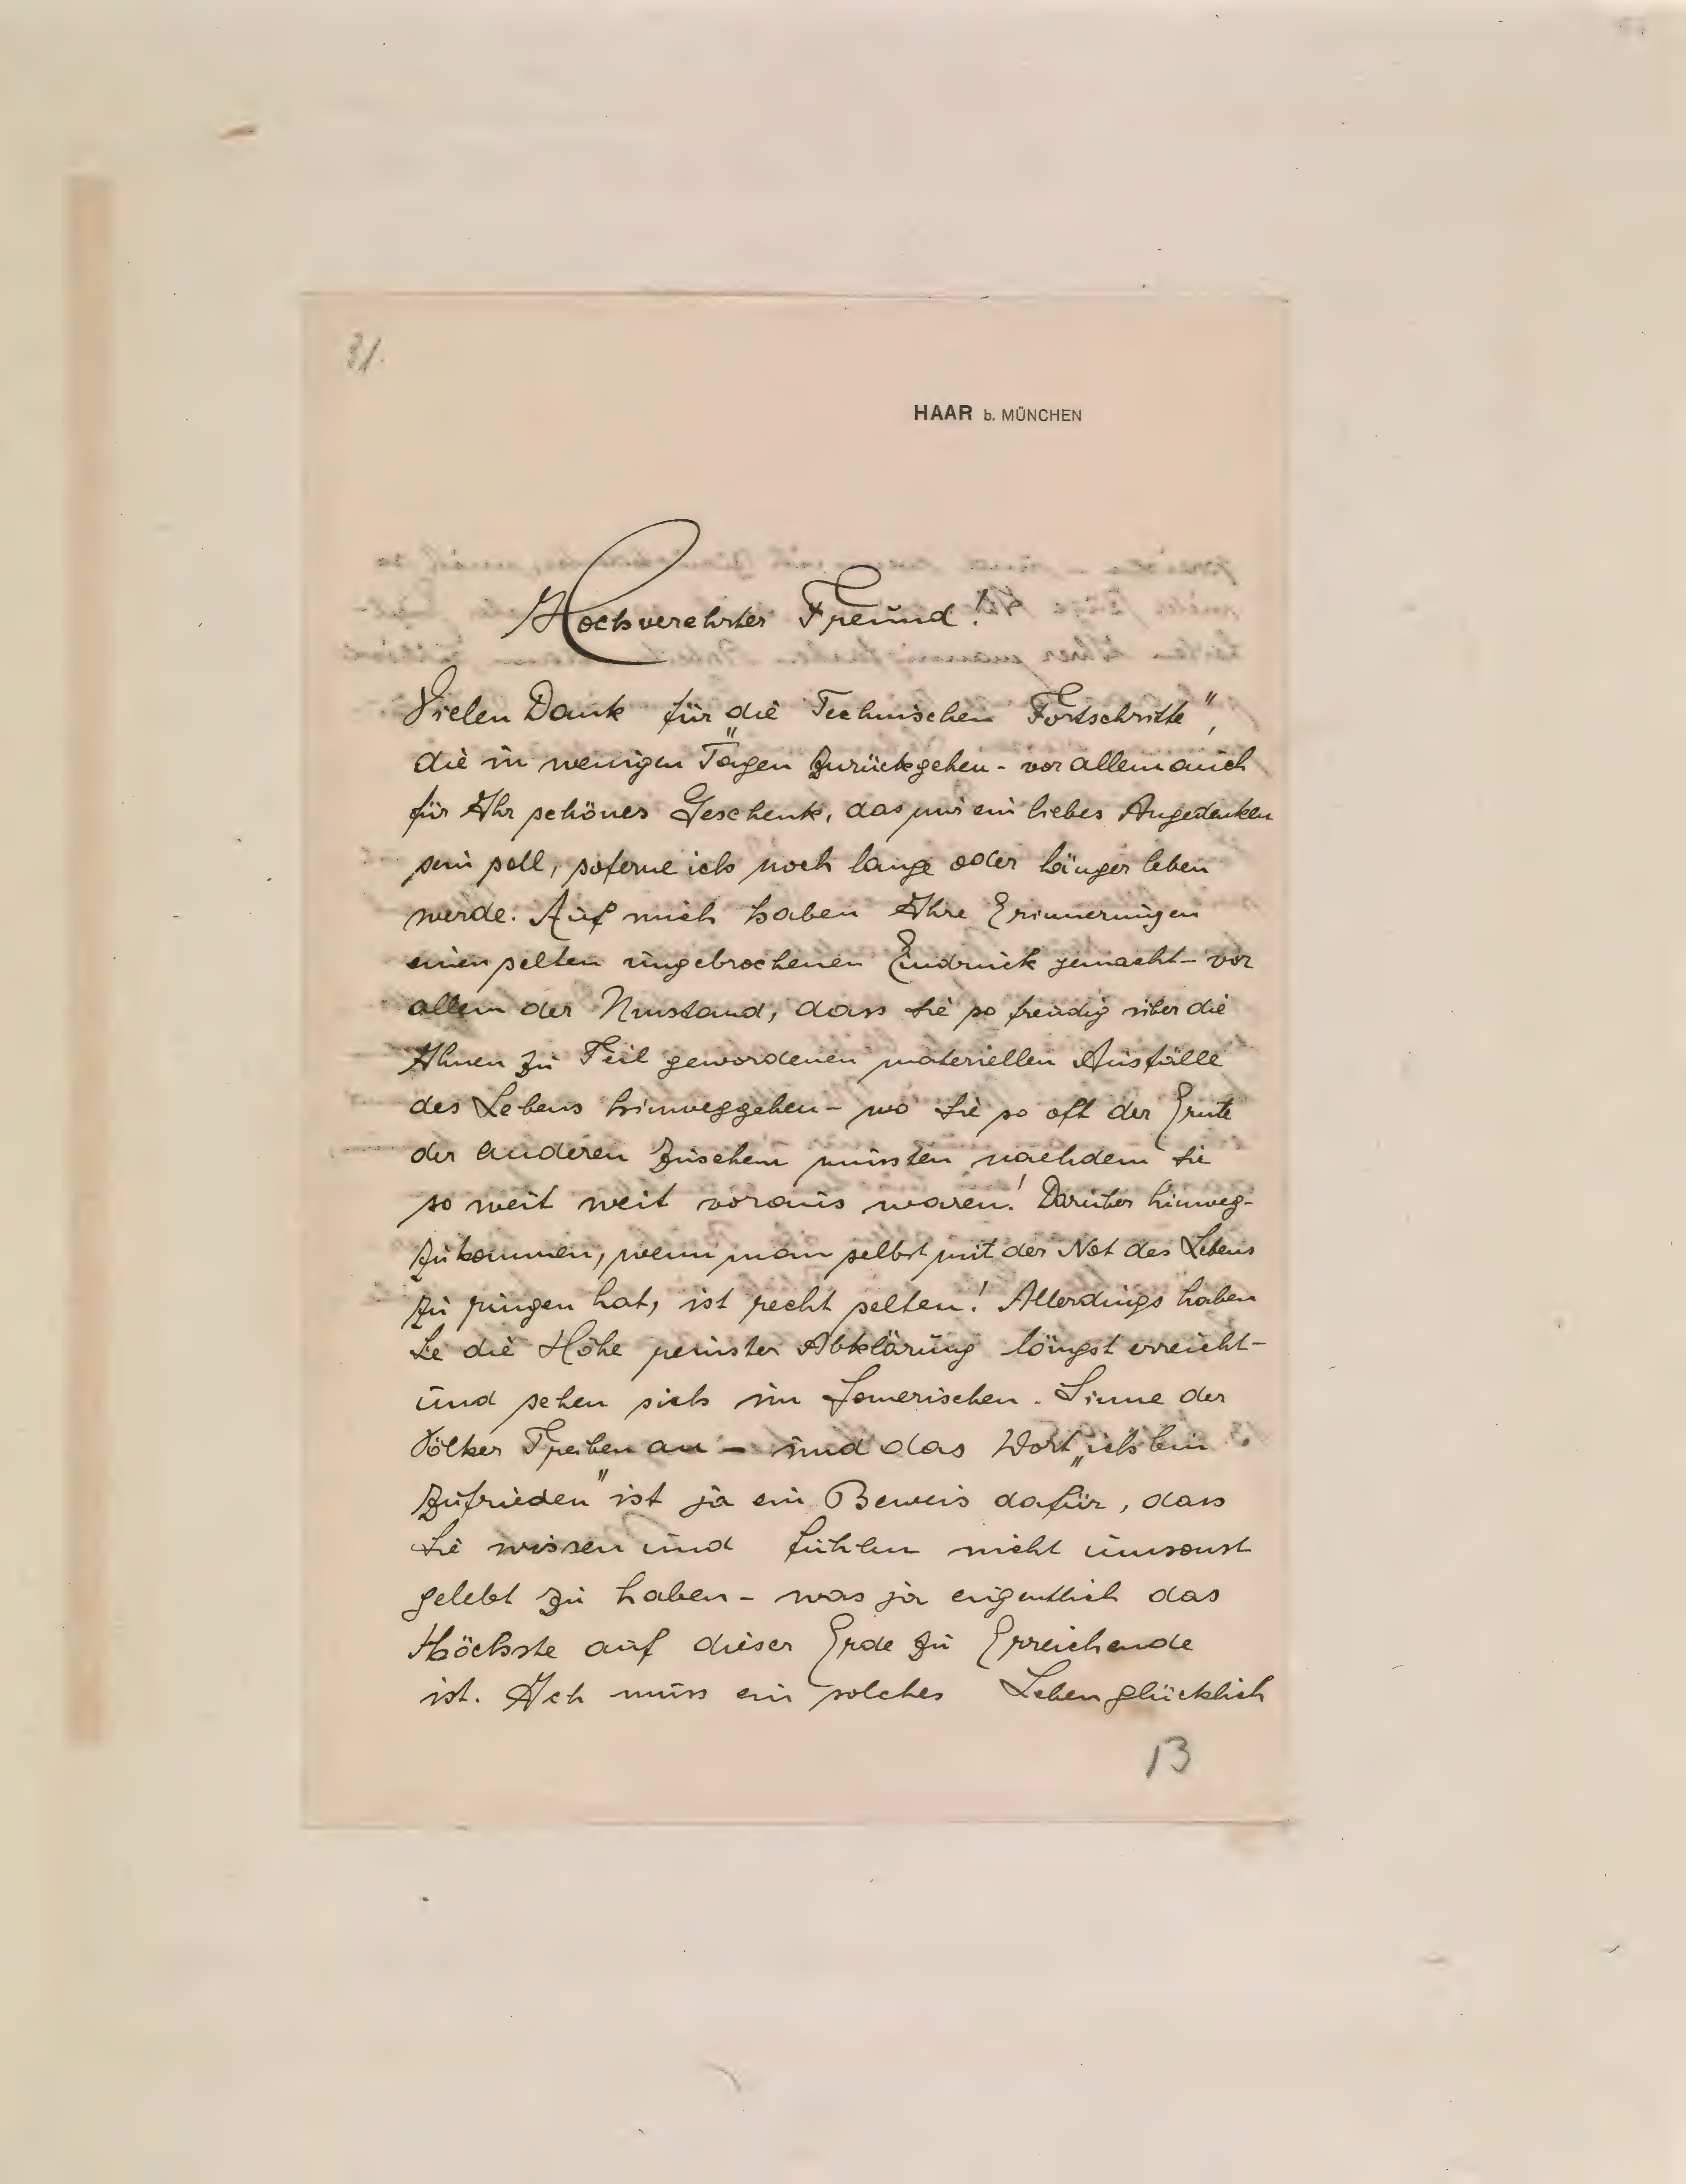 31.
HAAR b. MÜNCHEN
Hochverehrter Freund!
Vielen Dank für die „Technischen Fortschritte",
die in wenigen Tagen zurückgehen - vor allem auch
für Ihr schönes Geschenk, das mir ein liebes Angedenken
sein soll, soferne ich noch lange oder länger leben
werde. Auf mich haben Ihre Erinnerungen
einen selten ungebrochenen Eindruck gemacht - vor
allem der Umstand, dass Sie so freudig über die
Ihnen zu Teil gewordenen materiellen Ausfälle
des Lebens hinweggehen - wo Sie so oft der Ernte
der anderen zusehen mussten nachdem Sie
so weit weit voraus waren! Darüber hinweg-
zukommen, wenn man selbst mit der Not des Lebens
zu ringen hat, ist recht selten! Allerdings haben
Sie die Höhe reinster Abklärung längst erreicht -
und sehen sich im Sinne der
Völker Treiben an - und das Wort „ich bin
zufrieden" ist ja ein Beweis dafür, dass
Sie wissen und fühlen nicht umsonst
gelebt zu haben - was ja eigentlich das
Höchste auf dieser Erde zu Erreichende
ist. Ich muss ein solches Leben glücklich
13